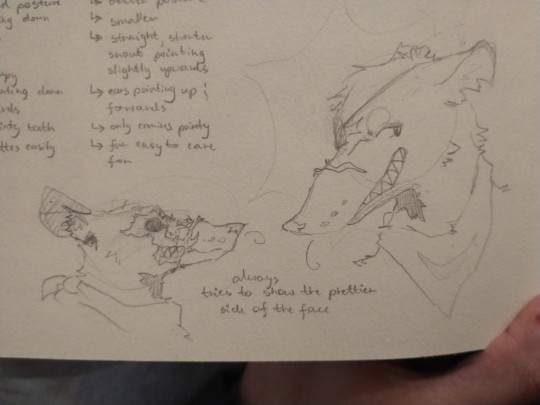 posture
↳ smaller
ng down
↳ straight, shorter
snout pointing
slightly upwards
ating down
↳ ears pointing up &
ards
forwards
inty teeth
↳ only canines pointy
ttes easily
↳ fur easy to care
for
always
tries to show the prettier
side of the face